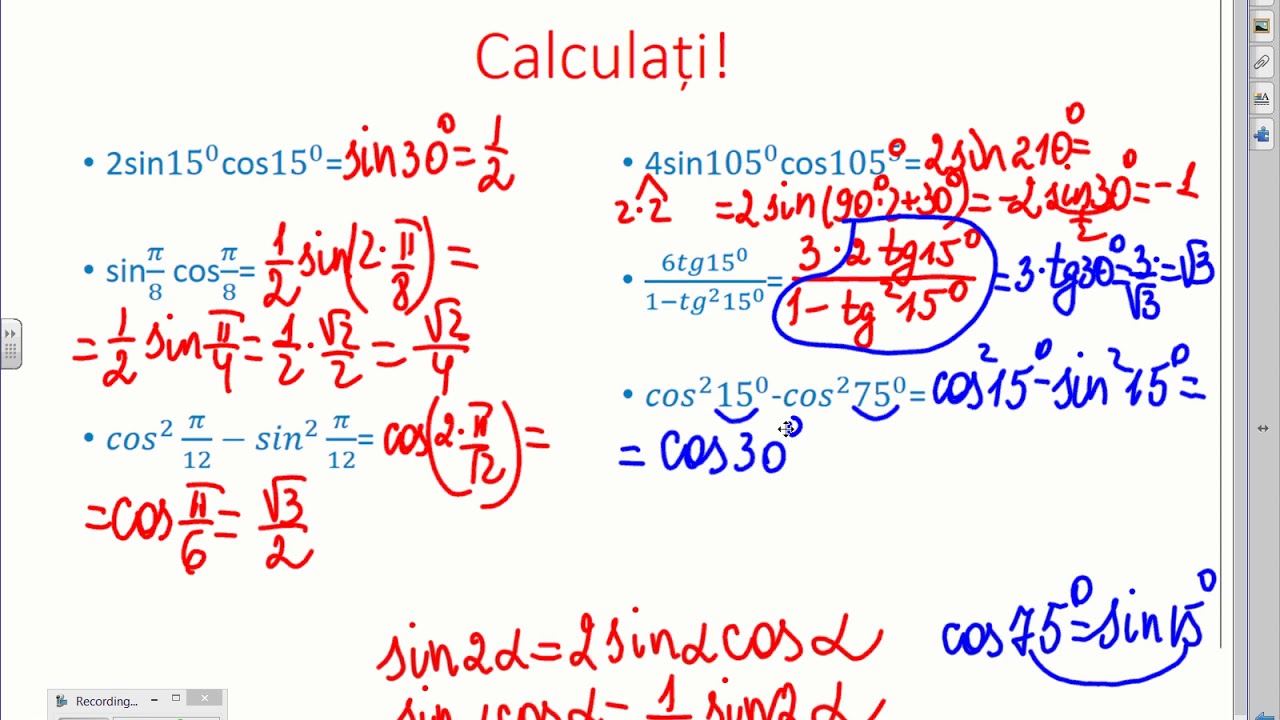 Calculați!
• 2sin15⁰cos15⁰=sin30⁰=1/2
• sin π/8 cos π/8= 1/2 sin(2·π/8)=
=1/2 sin π/4=1/2·√2/2=√2/4
• cos² π/12 − sin² π/12= cos(2·π/12)=
=cos π/6=√3/2
• 4sin105⁰cos105⁰=2sin210⁰=
2·2 =2sin(90⁰·2+30⁰)=-2sin30⁰=-1
2
• 6tg15⁰/1−tg²15⁰= 3·2tg15⁰/1-tg²15⁰ =3·tg30⁰=3·/√3=√3
• cos²15⁰-cos²75⁰=cos²15⁰-sin²15⁰=
=cos30⁰
cos75⁰=sin15⁰
sin2α=2sinαcosα
Recording...